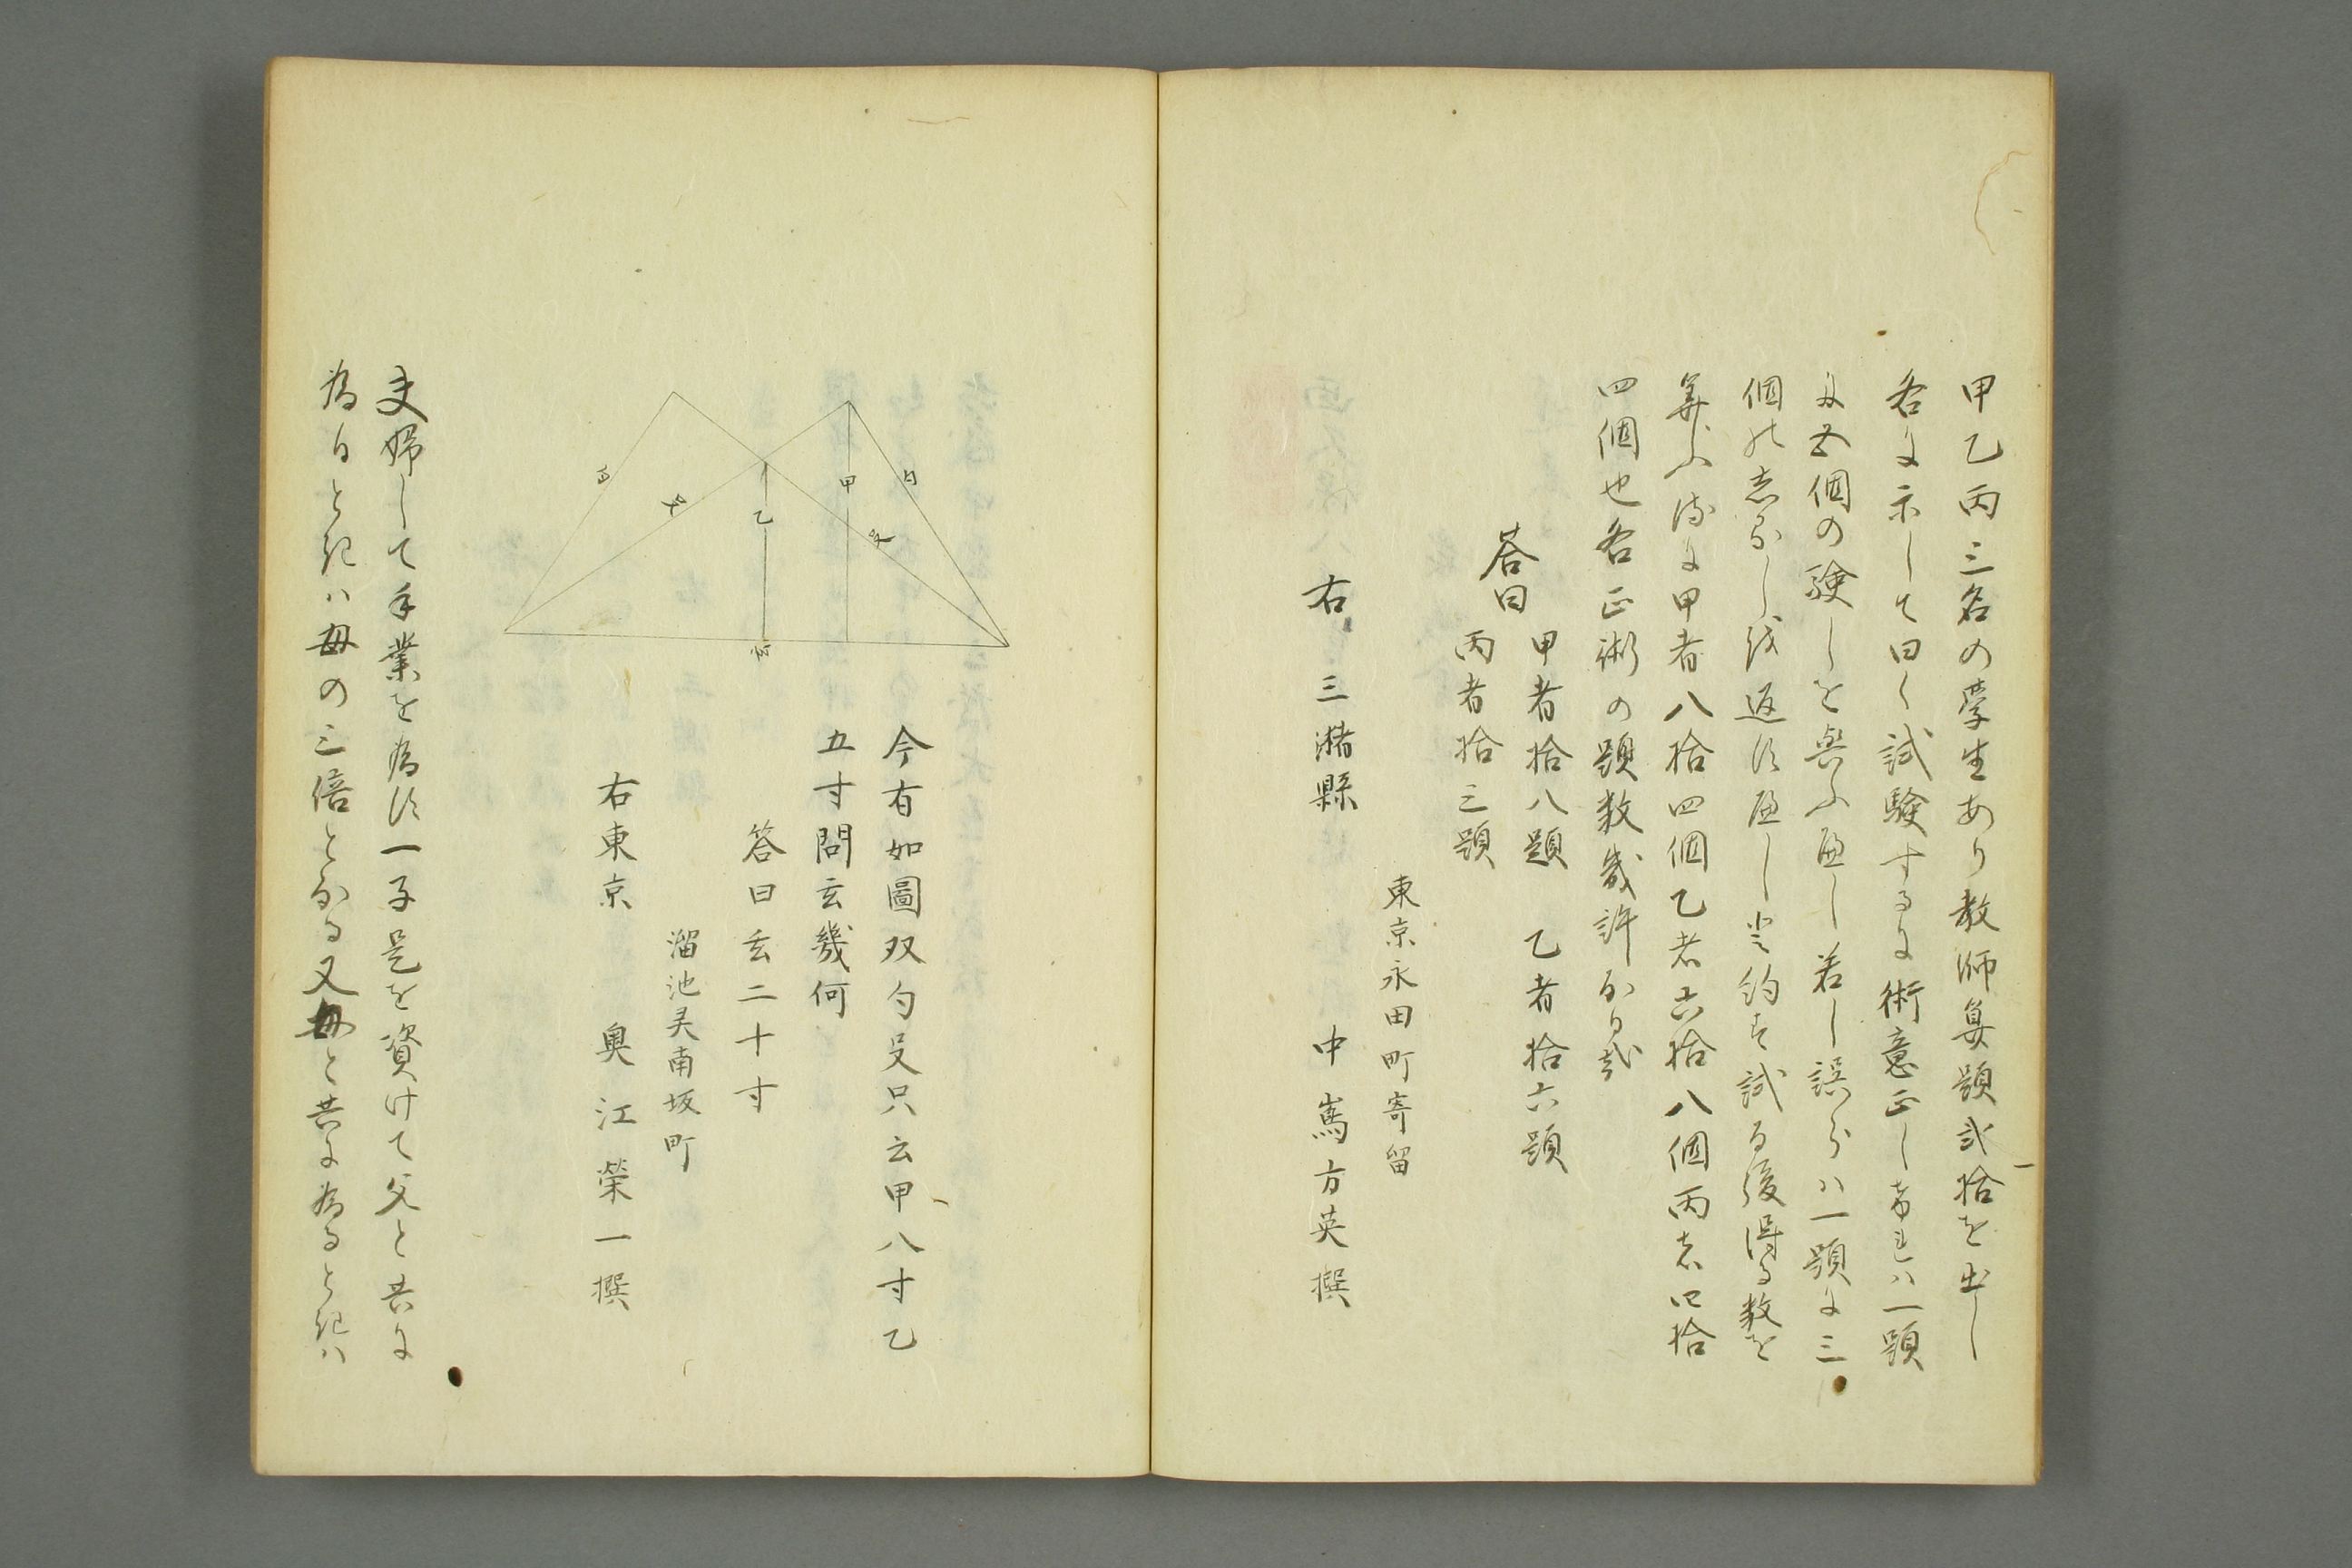 甲乙丙三名の學生あり教師算題弐拾を出し
各に示して曰く試験するに術意正しければ一題
に五個の験しを與ふ可し若し誤らハ一題に三
個のしるしを返す可しと約す試る後得る数を
算ふるに甲者八拾四個乙者六拾八個丙者四拾
四個也各正術の題数幾許なり哉
答曰
甲者拾八題 乙者拾六題
丙者拾三題
東京永田町寄留
右 三潴縣 中嶌方英撰
甲
乙
玄
今有如圖双勾只云甲八寸乙
五寸問玄幾何
答曰玄二十寸
溜池霊南坂町
右東京 奥江榮一撰
夫婦して手業を為す一子是を資けて父と共に
為日と記ハ母の三倍となる又母と共に為ると記ハ